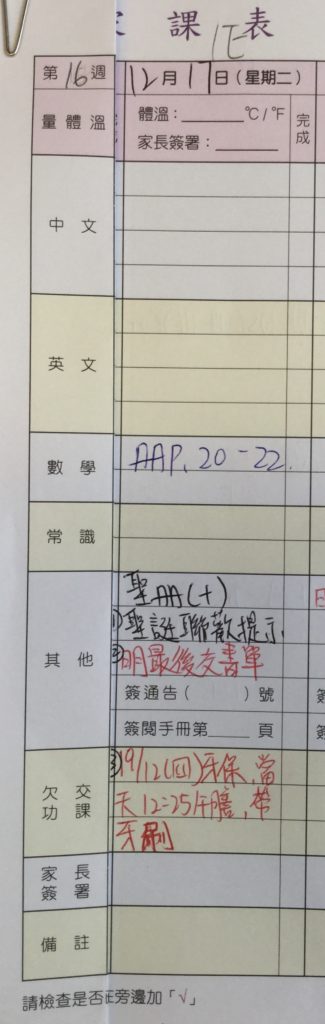 家課表
1E
第16週
12月17日(星期二)
量體溫
體溫：______°C/°F
家長簽署：______
完成
中文
英文
數學
AAP. 20-22.
常識
其他
聖冊(十)
1)聖誕聯歡提示.
2)明最後交書單
簽通告( )號
簽閱手冊第____頁
欠交功課
3)19/12(四)牙保,當
天12:25午膳,帶
牙刷
家長簽署
備註
請檢查是否在旁邊加「√」